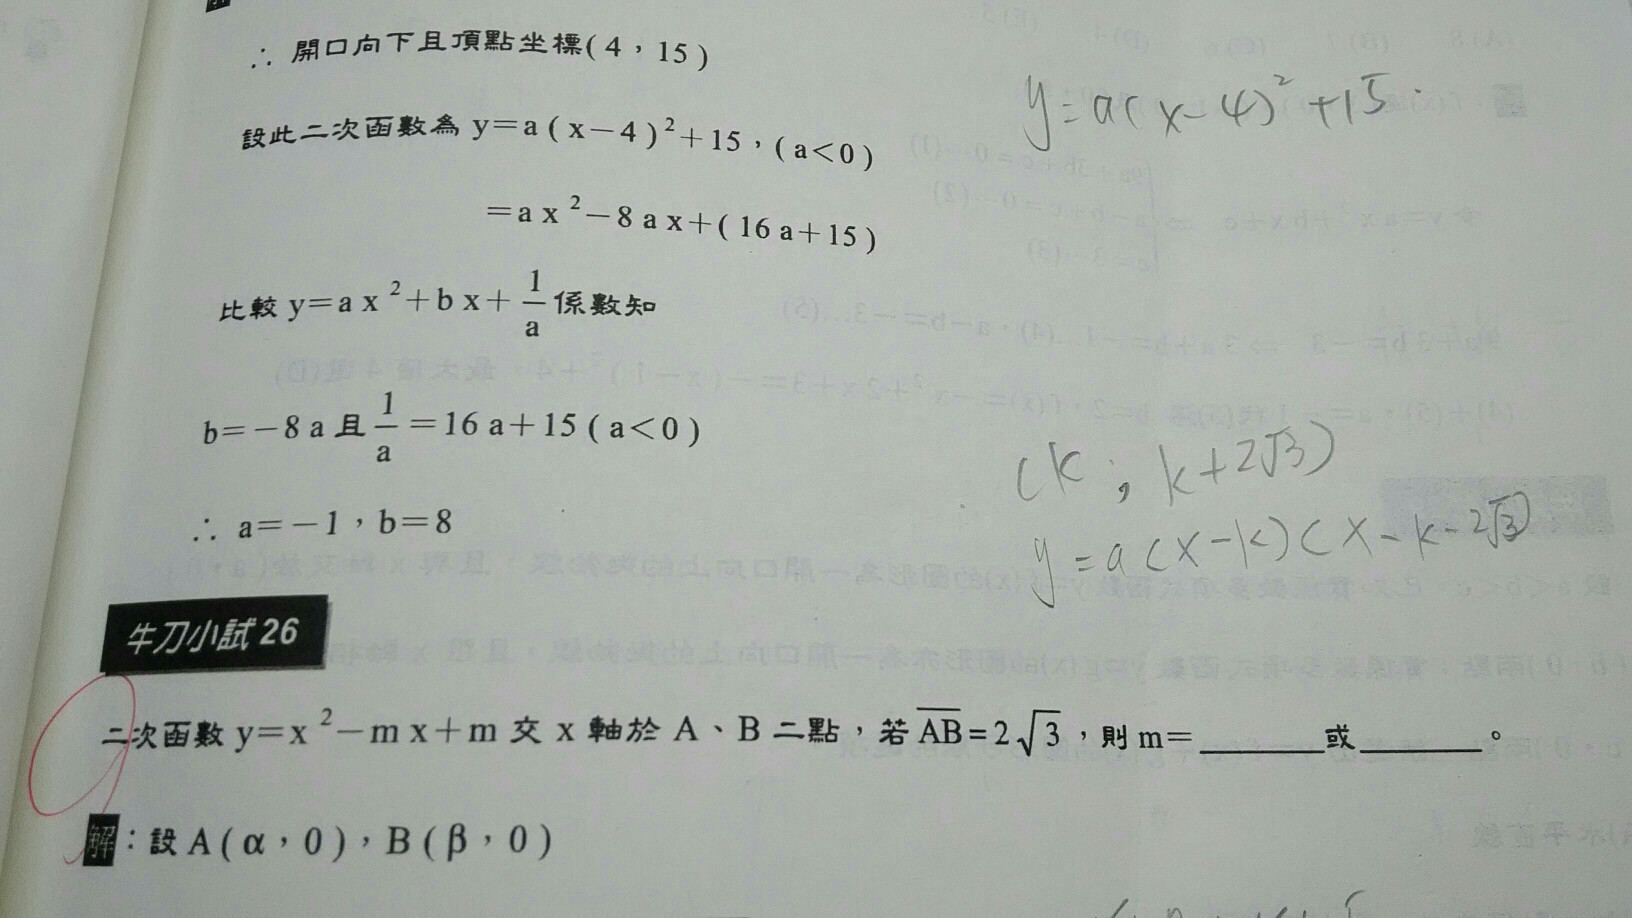 ∴ 開口向下且頂點坐標(4，15)
y=a(x-4)²+15
設此二次函數為 y=a(x-4)²+15，(a<0)
=ax²-8ax+(16a+15)
比較 y=ax²+bx+1/a 係數知
b=-8a 且 1/a =16a+15 (a<0)
(k ; k+2√3)
∴ a=-1，b=8
y=a(x-k)(x-k-2√3)
牛刀小試 26
二次函數 y=x²-mx+m 交 x 軸於 A、B 二點，若 AB=2√3，則 m=______ 或______。
解：設 A(α，0)，B(β，0)